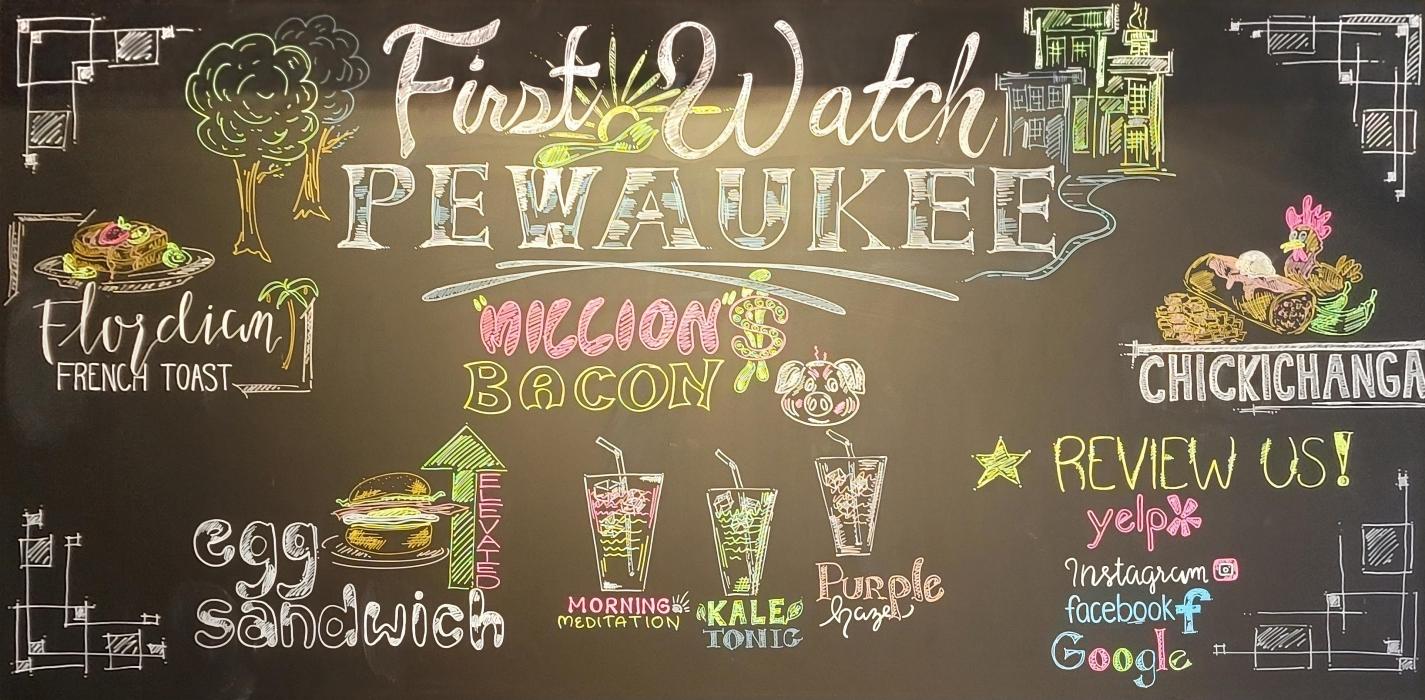 First Watch
PEWAUKEE
"MILLION" $
BACON
Flordian
FRENCH TOAST
CHICKICHANGA
egg
sandwich
ELEVATED
MORNING
MEDITATION
KALE
TONIC
PURPLE
haze
REVIEW US!
yelp
Instagram
facebook f
Google